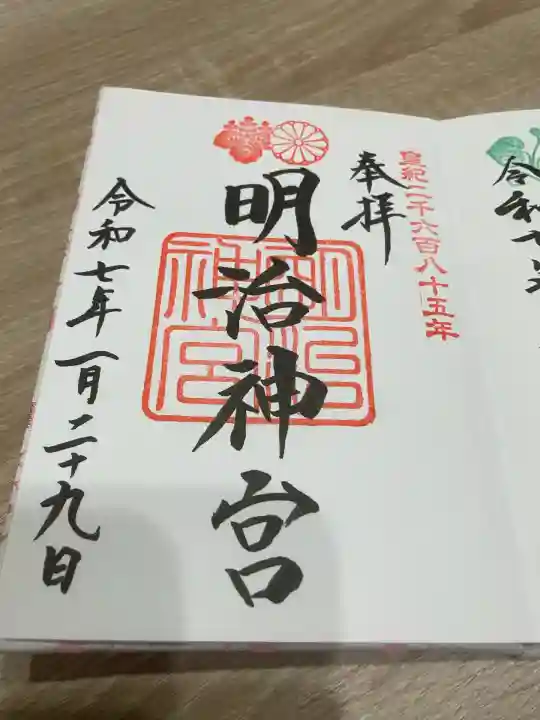 令和七年
皇紀二千六百八十五年
奉拝
明治神宮
明治神宮
令和七年一月二十九日